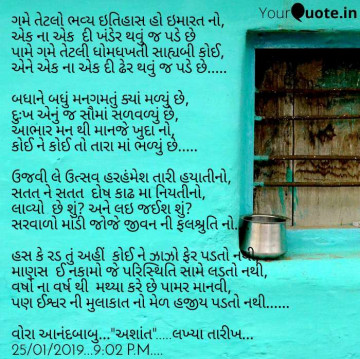 YourQuote.in
ગમે તેટલો ભવ્ય ઇતિહાસ હો ઇમારત નો,
એક ના એક દી ખંડેર થવું જ પડે છે
પામે ગમે તેટલી ધોમધખતી સાહ્યબી કોઈ,
એને એક ના એક દી ઢેર થવું જ પડે છે.....
બધાને બધું મનગમતું ક્યાં મળ્યું છે,
દુઃખ એનું જ સૌમાં સળવળ્યું છે,
આભાર મન થી માનજે ખુદા નો,
કોઈ ને કોઈ તો તારા માં ભળ્યું છે.....
ઉજવી લે ઉત્સવ હરહંમેશ તારી હયાતીનો,
સતત ને સતત દોષ કાઢ મા નિયતીનો,
લાવ્યો છે શું? અને લઇ જઈશ શું?
સરવાળો માંડી જોજે જીવન ની ફલશ્રુતિ નો..
હસ કે રડ તું અહીં કોઈ ને ઝાઝો ફેર પડતો નથી,
માણસ ઈ નકામો જે પરિસ્થિતિ સામે લડતો નથી,
વર્ષો ના વર્ષ થી મથ્યા કરે છે પામર માનવી,
પણ ઈશ્વર ની મુલાકાત નો મેળ હજીય પડતો નથી......
વોરા આનંદબાબુ..."અશાંત".....લખ્યા તારીખ...
25/01/2019...9:02 P.M....